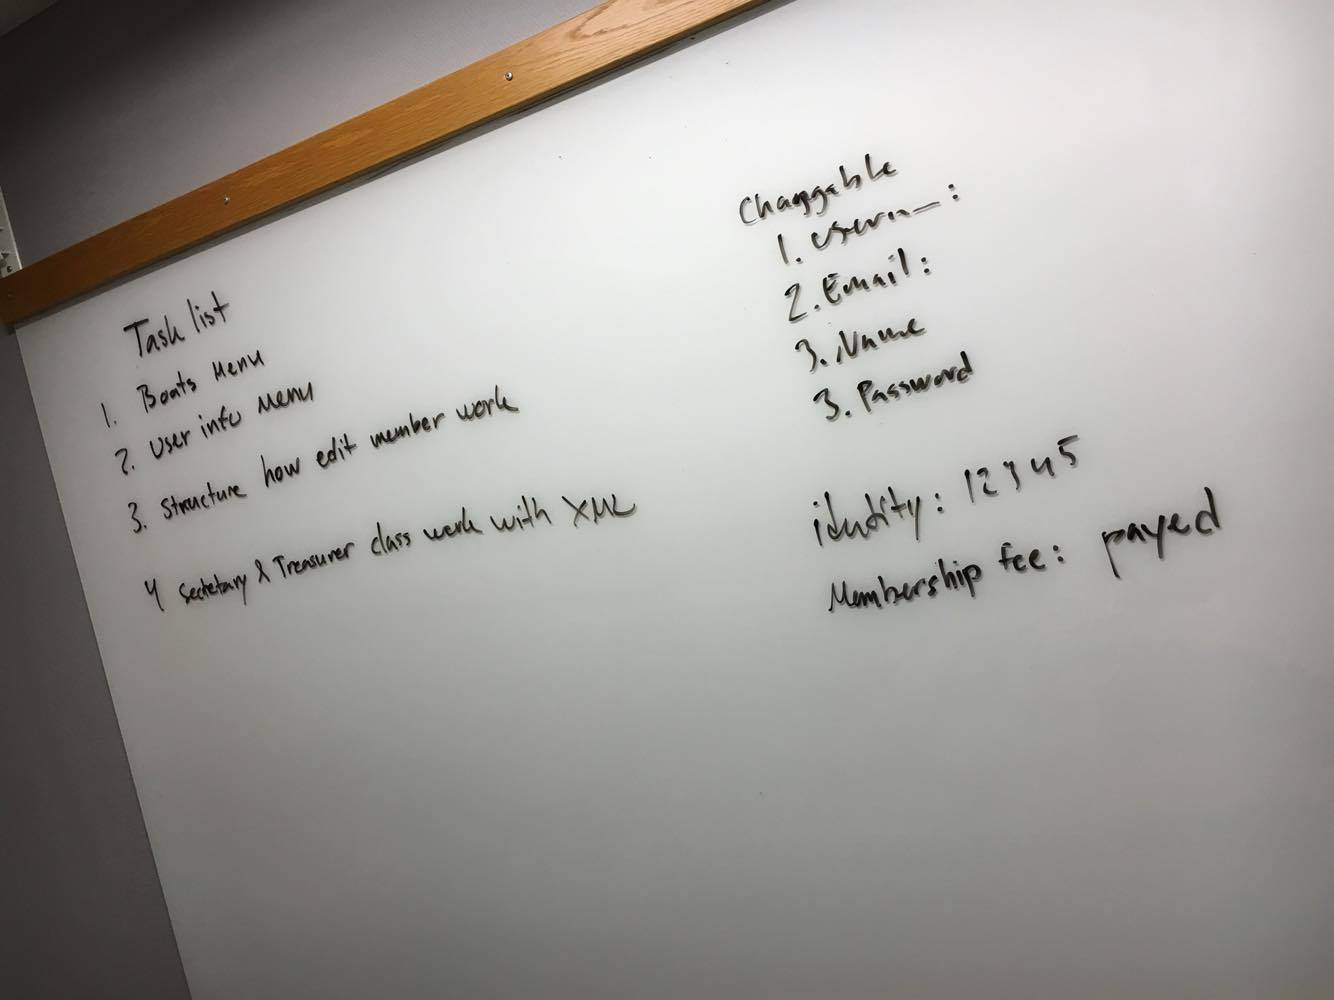 Task list
1. Boats Menu
2. User info Menu
3. Structure how edit member work
4 Secretary & Treasurer class work with XML
Changable
1.
2. Email:
3. Name
3. Password
identity: 12345
Membership fee: payed